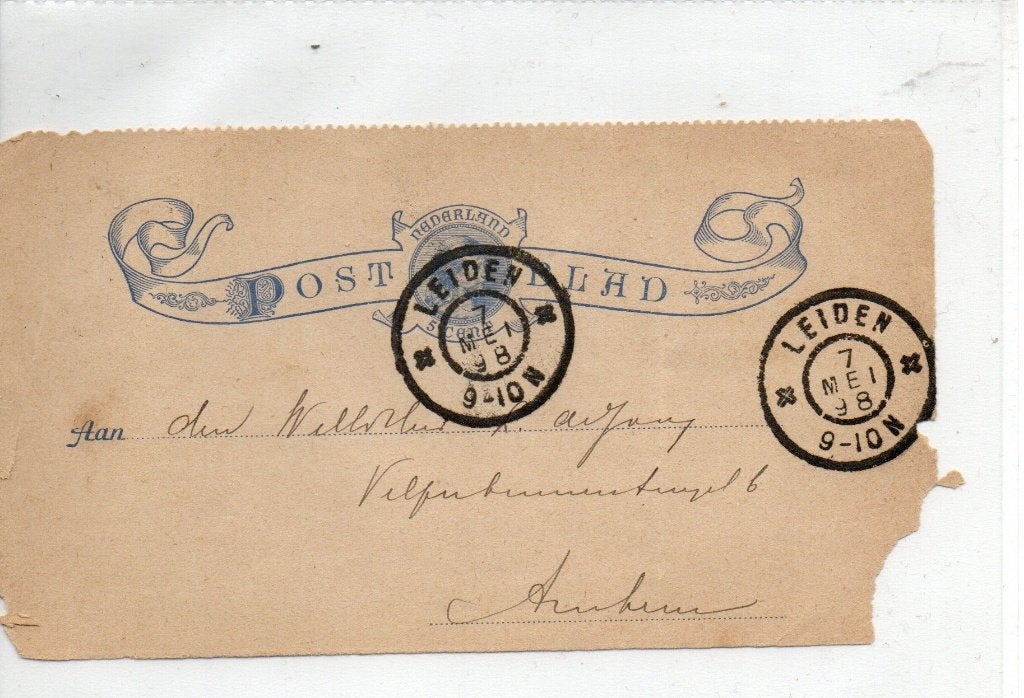 NEDERLAND
POST BLAD
5 CENT
LEIDEN
7
MEI
98
9-10N
LEIDEN
7
MEI
98
9-10N
Aan den d. Jong
Velperbinnensingel 6
Arnhem